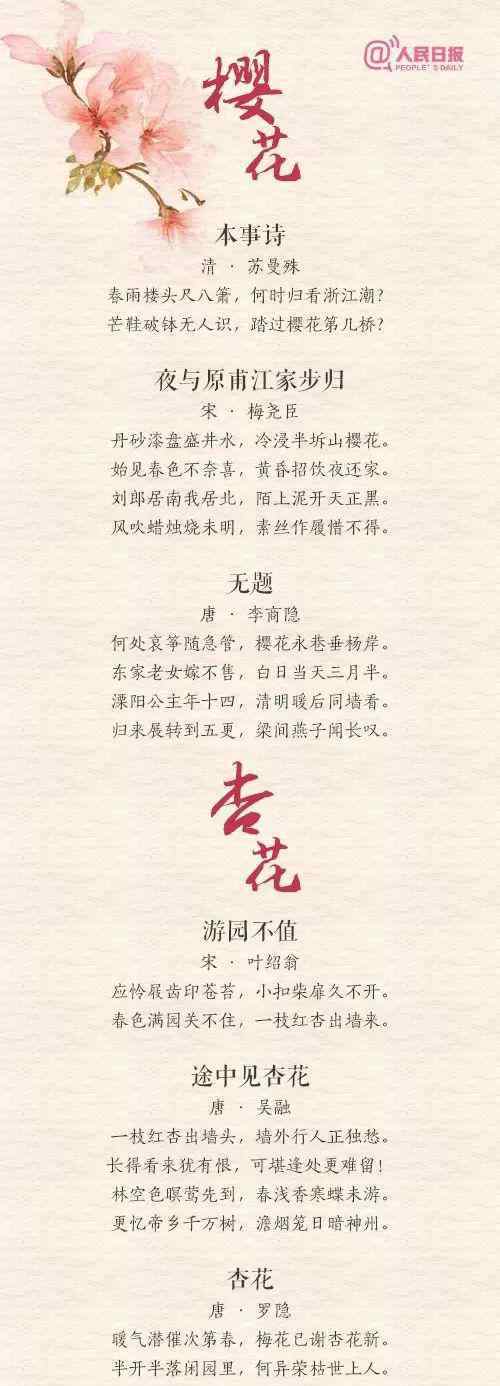 @人民日报
PEOPLE'S DAILY
樱花
本事诗
清 · 苏曼殊
春雨楼头尺八箫，何时归看浙江潮？
芒鞋破钵无人识，踏过樱花第几桥？
夜与原甫江家步归
宋 · 梅尧臣
丹砂漆盘盛井水，冷浸半坼山樱花。
始见春色不奈喜，黄昏招饮夜还家。
刘郎居南我居北，陌上泥开天正黑。
风吹蜡烛烧未明，素丝作履惜不得。
无题
唐 · 李商隐
何处哀筝随急管，樱花永巷垂杨岸。
东家老女嫁不售，白日当天三月半。
溧阳公主年十四，清明暖后同墙看。
归来展转到五更，梁间燕子闻长叹。
杏花
游园不值
宋 · 叶绍翁
应怜屐齿印苍苔，小扣柴扉久不开。
春色满园关不住，一枝红杏出墙来。
途中见杏花
唐 · 吴融
一枝红杏出墙头，墙外行人正独愁。
长得看来犹有恨，可堪逢处更难留！
林空色暝莺先到，春浅香寒蝶未游。
更忆帝乡千万树，澹烟笼日暗神州。
杏花
唐 · 罗隐
暖气潜催次第春，梅花已谢杏花新。
半开半落闲园里，何异荣枯世上人。